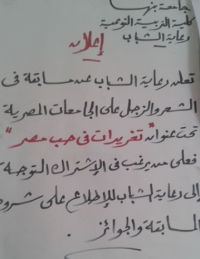 جامعة بنها
كلية التربية النوعية
رعاية الشباب
إعلان
تعلن رعاية الشباب عن مسابقة فى
الشعر والزجل على الجامعات المصرية
تحت عنوان "تغريدات فى حب مصر"
فعلى من يرغب فى الإشتراك التوجه
إلى رعاية الشباب للإطلاع على شروط
المسابقة والجوائز.